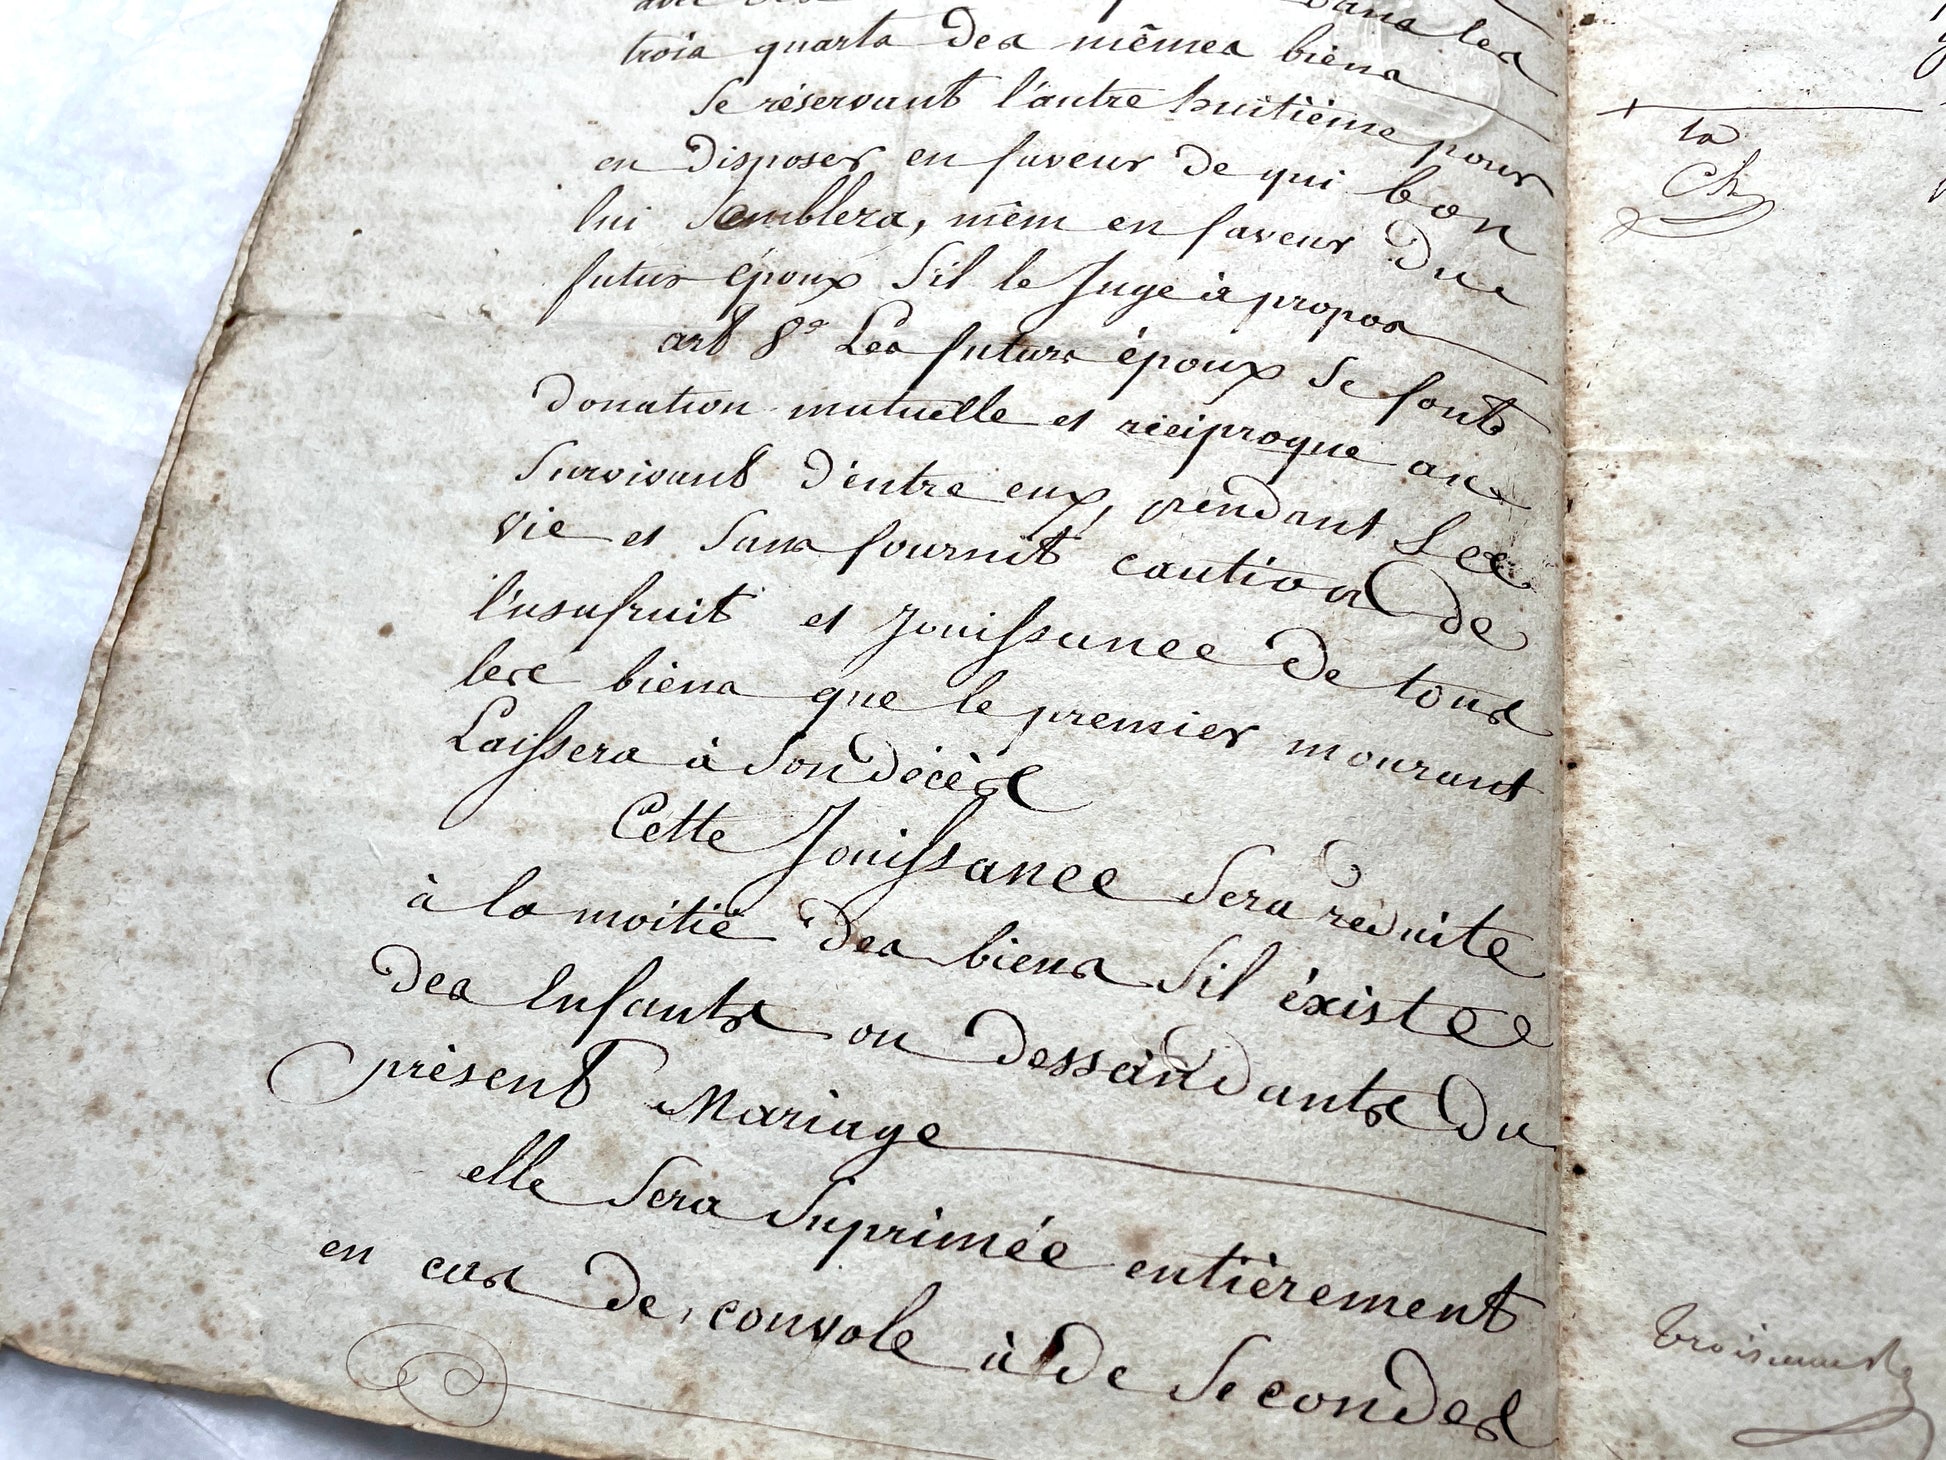 dans les
trois quarts des mêmes biens
se réservant l'autre huitième pour
en disposer en faveur de qui bon
lui semblera, mêm en faveur du
futur époux s'il le juge à propos
art 8e Les futurs époux se font
donation mutuelle et réciproque au
survivant d'entre eux, pendant sa
vie et sans fournit caution de
l'usufruit et jouissance de tous
les biens que le premier mourant
Laissera à son décès
Cette Jouissance sera réduite
à la moitié des biens s'il éxiste
des Enfants ou dessandants du
présent Mariage
elle sera suprimée entièrement
en cas de convole à de secondes
la
Ch